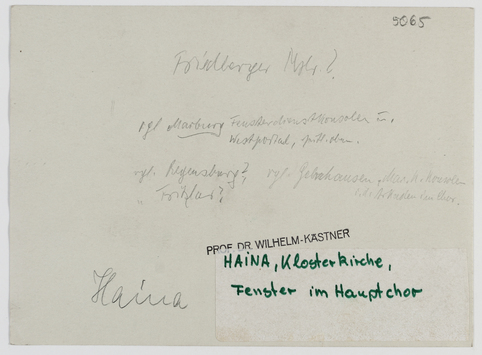 9065
Friedberger Mstr.?
vgl. Marburg Fensterdienstkonsolen u.
Westportal,
vgl. Regensburg?, vgl. Gelnhausen,
" Fritzlar?
PROF. DR. WILHELM-KÄSTNER
HAINA, Klosterkirche,
Fenster im Hauptchor
Haina